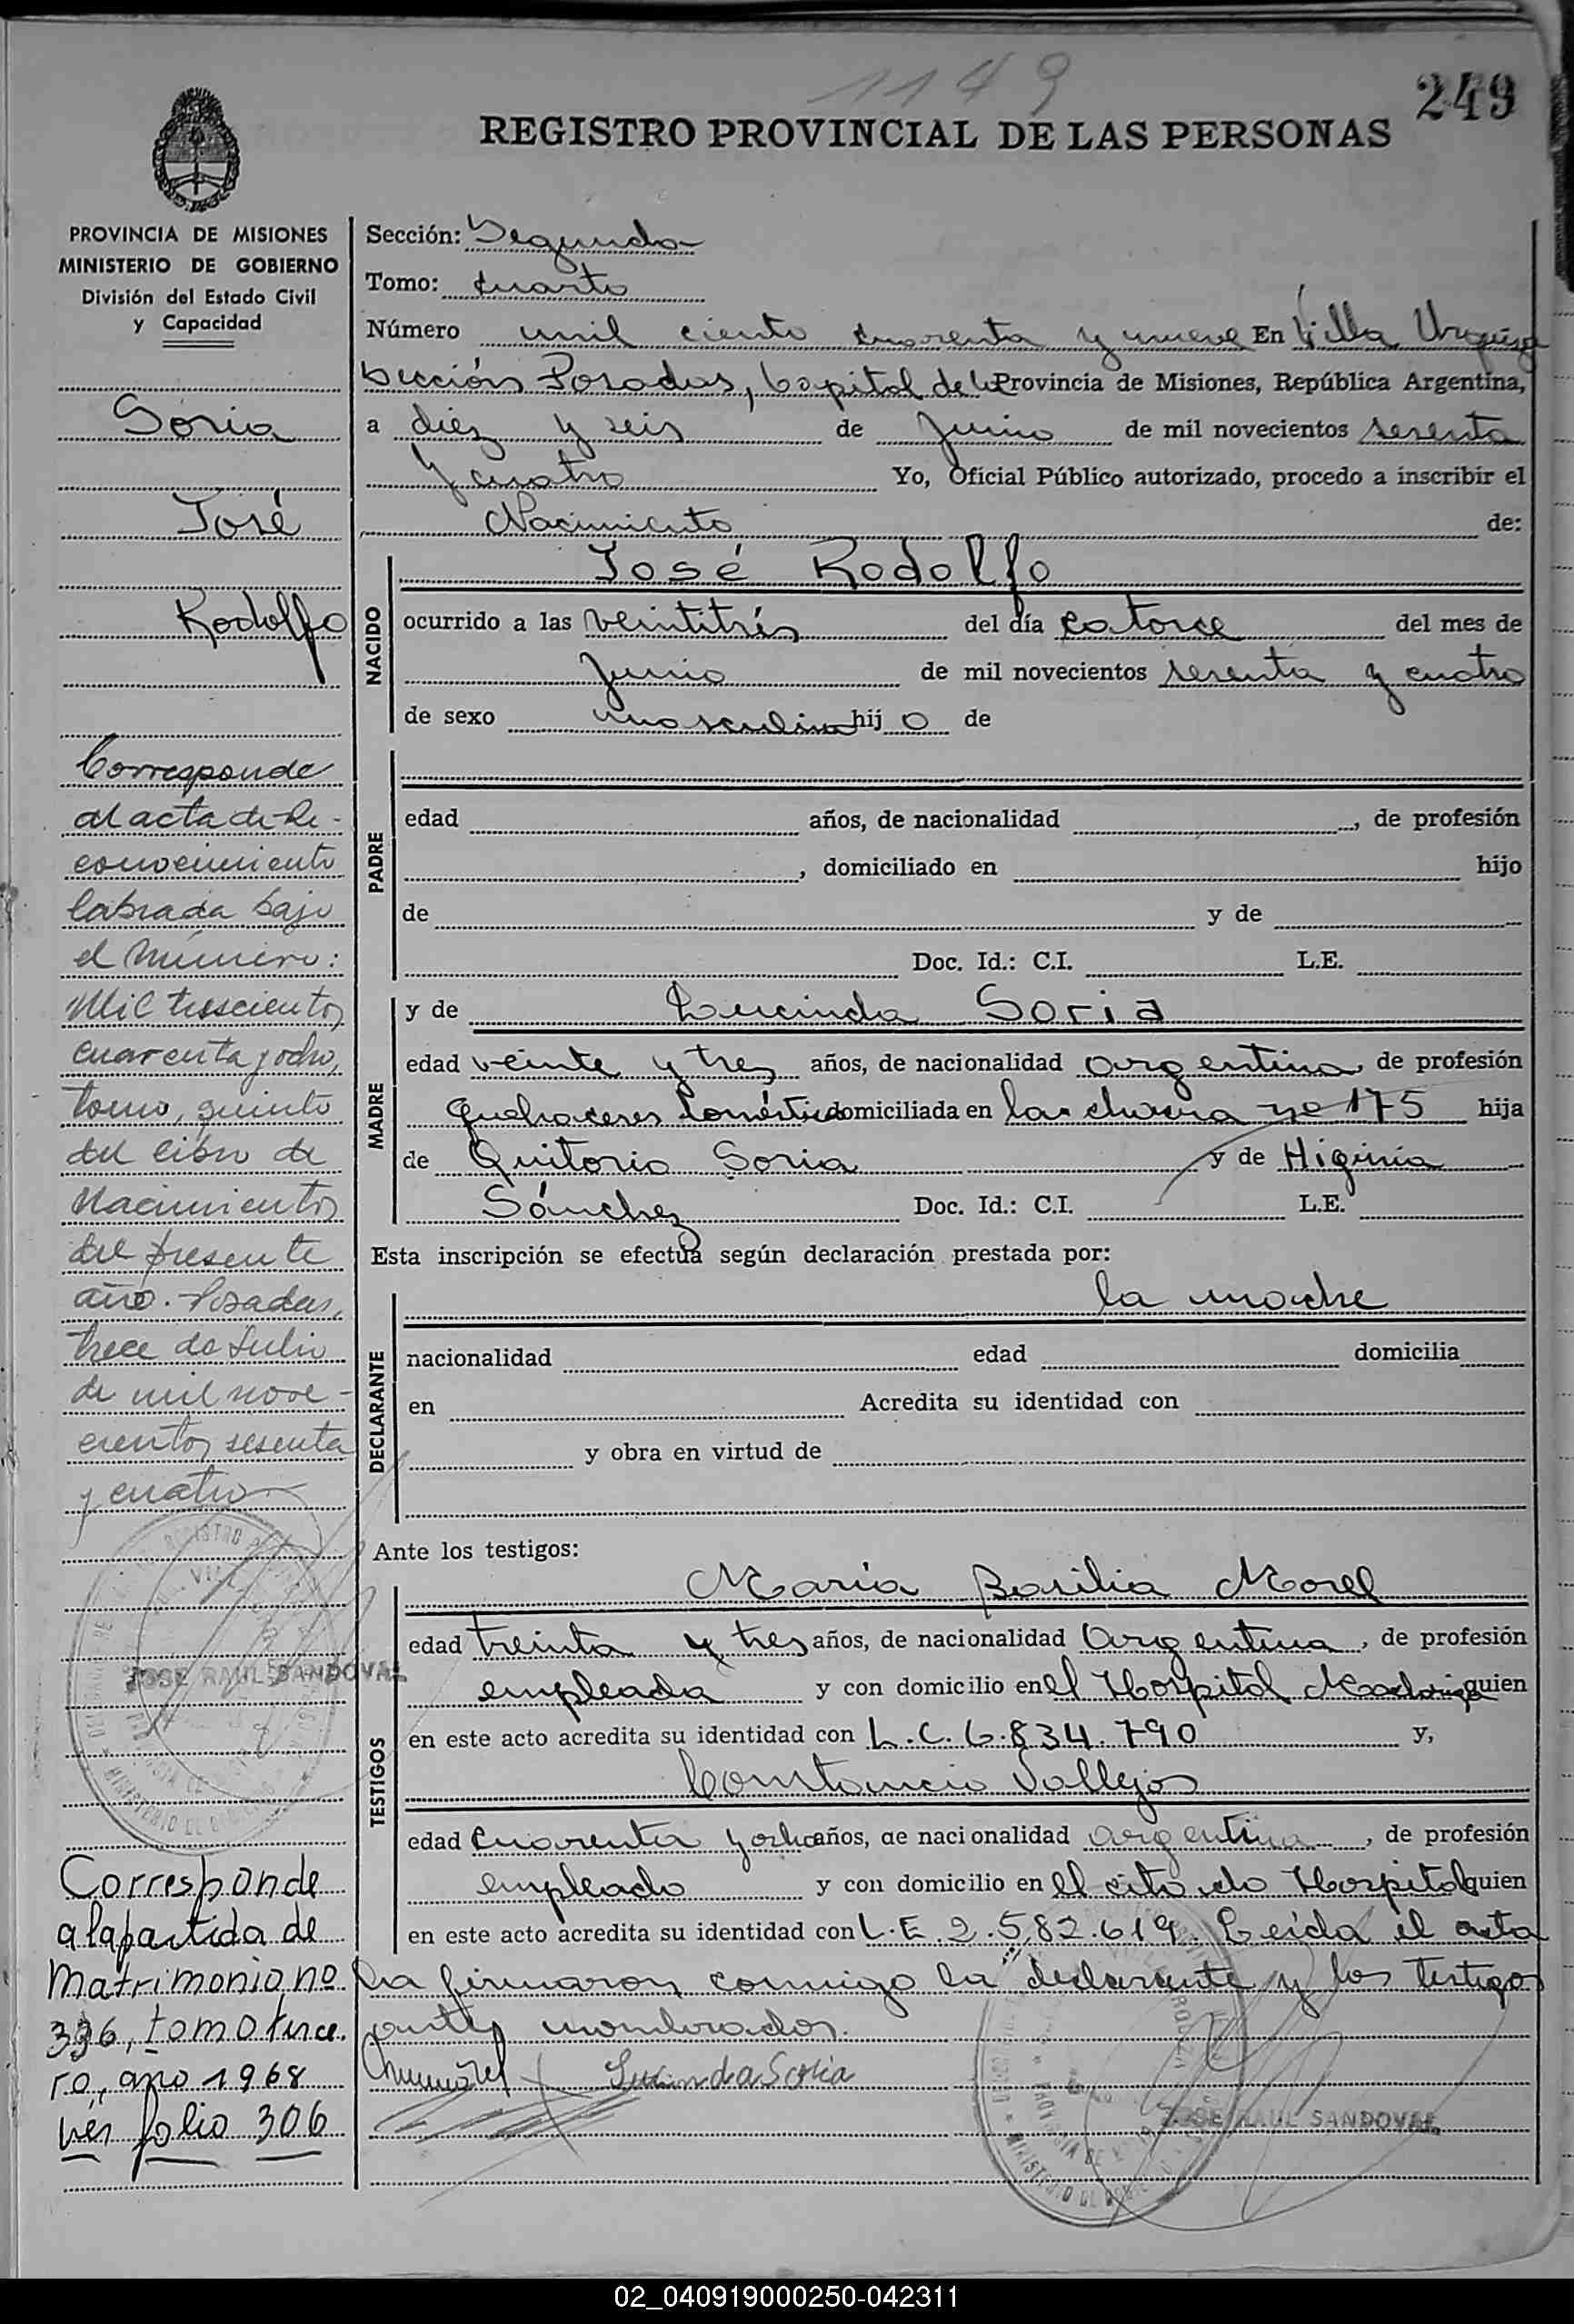 1149
249
REGISTRO PROVINCIAL DE LAS PERSONAS
PROVINCIA DE MISIONES
MINISTERIO DE GOBIERNO
División del Estado Civil
y Capacidad
Soria
José
Rodolfo
Corresponde
al acta de Re-
conocimiento
labrada bajo
el número:
Mil trescientos
cuarenta y ocho,
tomo, quinto
del libro de
Nacimientos
del presente
año. Posadas,
trece de Julio
de mil nove-
cientos sesenta
y cuatro
JOSE RAUL SANDOVAL
Corresponde
a la partida de
Matrimonio no
336, tomo terce.
ro, año 1968
folio 306
Sección: Segunda
Tomo: Cuarto
Número mil ciento cuarenta y nueve En Villa Urquiza
Sección Posadas, Capital de la Provincia de Misiones, República Argentina,
a diez y seis de Junio de mil novecientos sesenta
y cuatro Yo, Oficial Público autorizado, procedo a inscribir el
Nacimiento de:
NACIDO
José Rodolfo
ocurrido a las veintitrés del día catorce del mes de
Junio de mil novecientos sesenta y cuatro
de sexo masculino hijo de
PADRE
edad años, de nacionalidad , de profesión
, domiciliado en hijo
de y de
Doc. Id.: C.I. L.E.
MADRE
y de Lucinda Soria
edad veinte y tres años, de nacionalidad argentina, de profesión
Quehaceres Domésticos domiciliada en la chacra no 175 hija
de Quitorio Soria y de Higinia
Sánchez Doc. Id.: C.I. L.E.
Esta inscripción se efectúa según declaración prestada por:
DECLARANTE
la madre
nacionalidad edad domicilia
en Acredita su identidad con
y obra en virtud de
Ante los testigos:
TESTIGOS
María Basilia Morel
edad treinta y tres años, de nacionalidad Argentina, de profesión
empleada y con domicilio en el Hospital Madariaga quien
en este acto acredita su identidad con L.C. 6.834.790 y,
Constancio Vallejos
edad cuarenta y ocho años, de nacionalidad argentina, de profesión
empleado y con domicilio en el citado Hospital quien
en este acto acredita su identidad con L.E. 2.582.619. Leída el acta
la firmaron conmigo la declarante y los testigos
antes nombrados.
Lucinda Soria
JOSE RAUL SANDOVAL
02_040919000250-042311